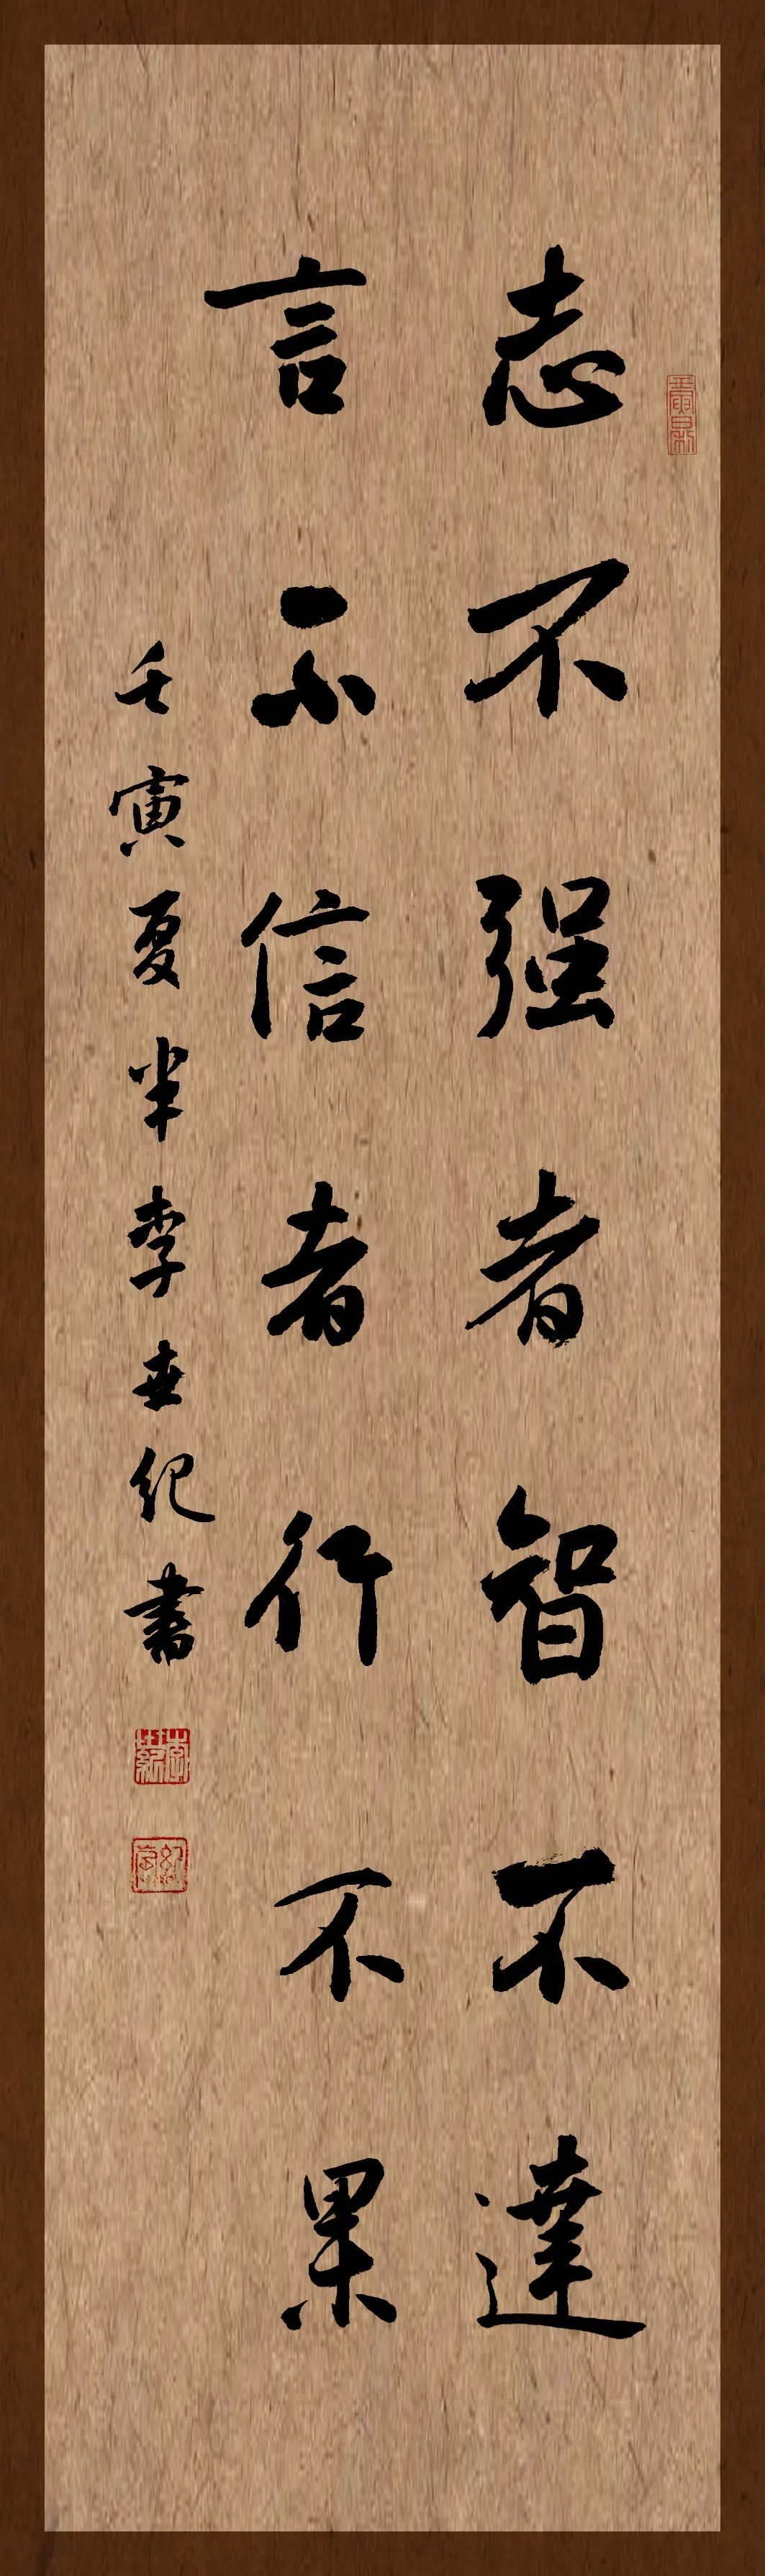 志不强者智不達
言不信者行不果
壬寅夏半李世纪書